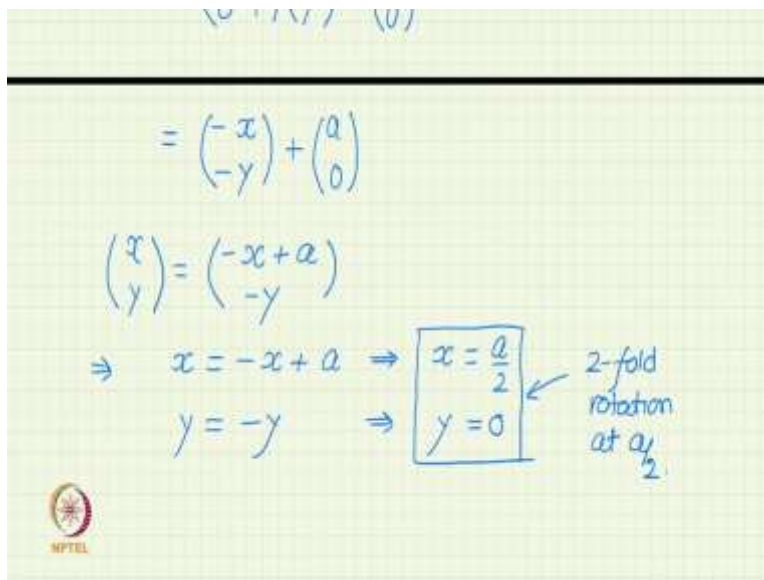 = (-x -y) + (a 0)
(x y) = (-x + a -y)
⇒ x = -x + a ⇒ x = a/2
y = -y ⇒ y = 0
2-fold
rotation
at a/2.
NPTEL